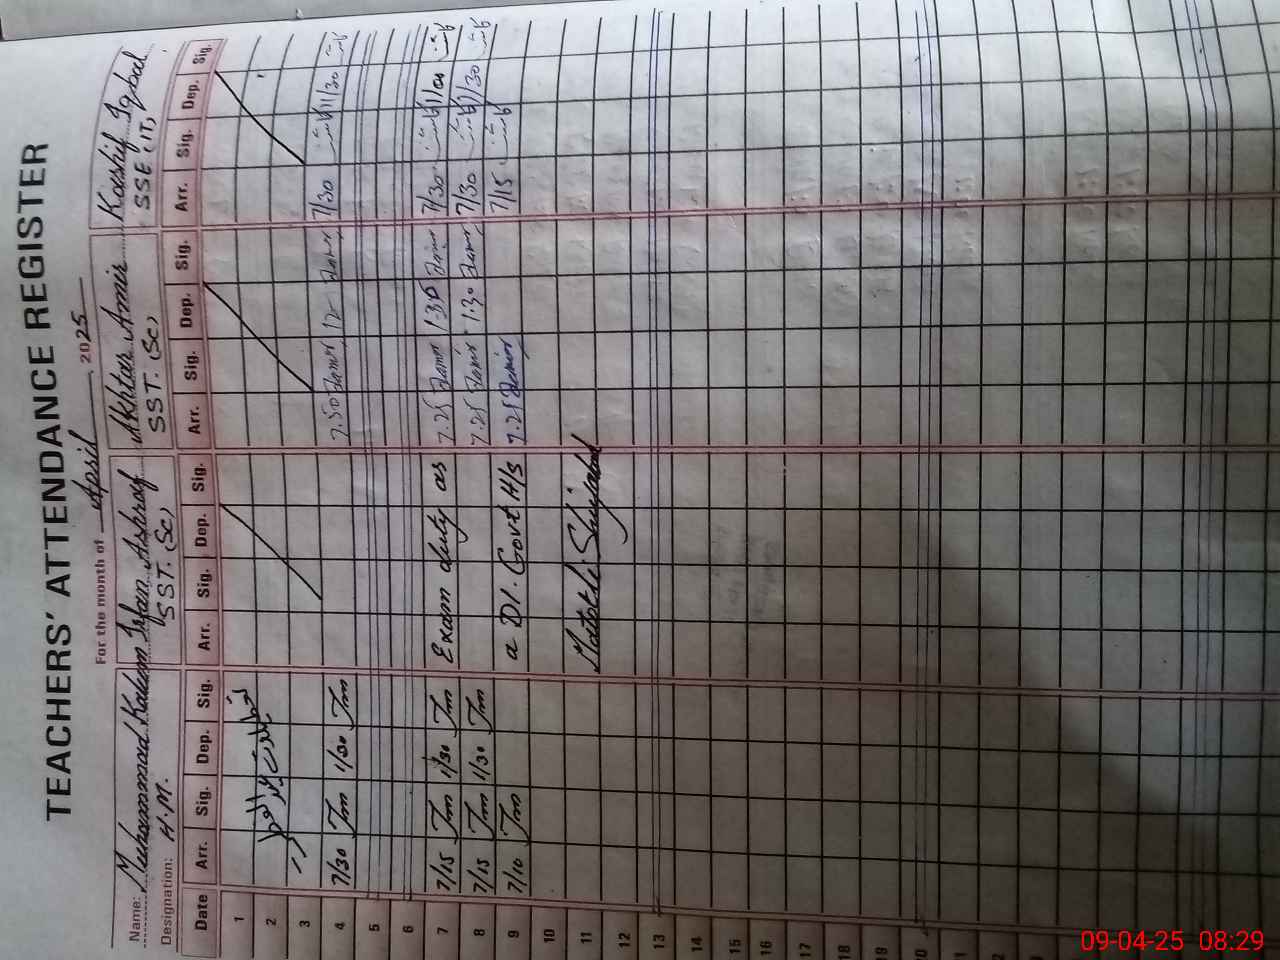 TEACHERS' ATTENDANCE REGISTER
For the month of April, 2025
Name: Muhammad Kaleem Irfan Ashraf Akhtar Amir Kashif Iqbal
Designation: H.M. SST. (Sc) SST. (Sc) SSE (IT)
Date Arr. Sig. Dep. Sig. Arr. Sig. Dep. Sig. Arr. Sig. Dep. Sig. Arr. Sig. Dep. Sig.
1
2
3
4 7/30 1/30 7.50 Aamir 12 Aamir 7/30 11/30
5
6
7 7/15 1/30 Exam duty as 7.25 Aamir 1:30 Aamir 7/30
8 7/15 1/30 7.25 Aamir 1:30 Aamir 7/30 1/30
9 7/10 a D/. Govt H/s 7.25 Aamir 7/15
10
11 Shujabad
12
13
14
15
16
17
18
19
20
09-04-25 08:29